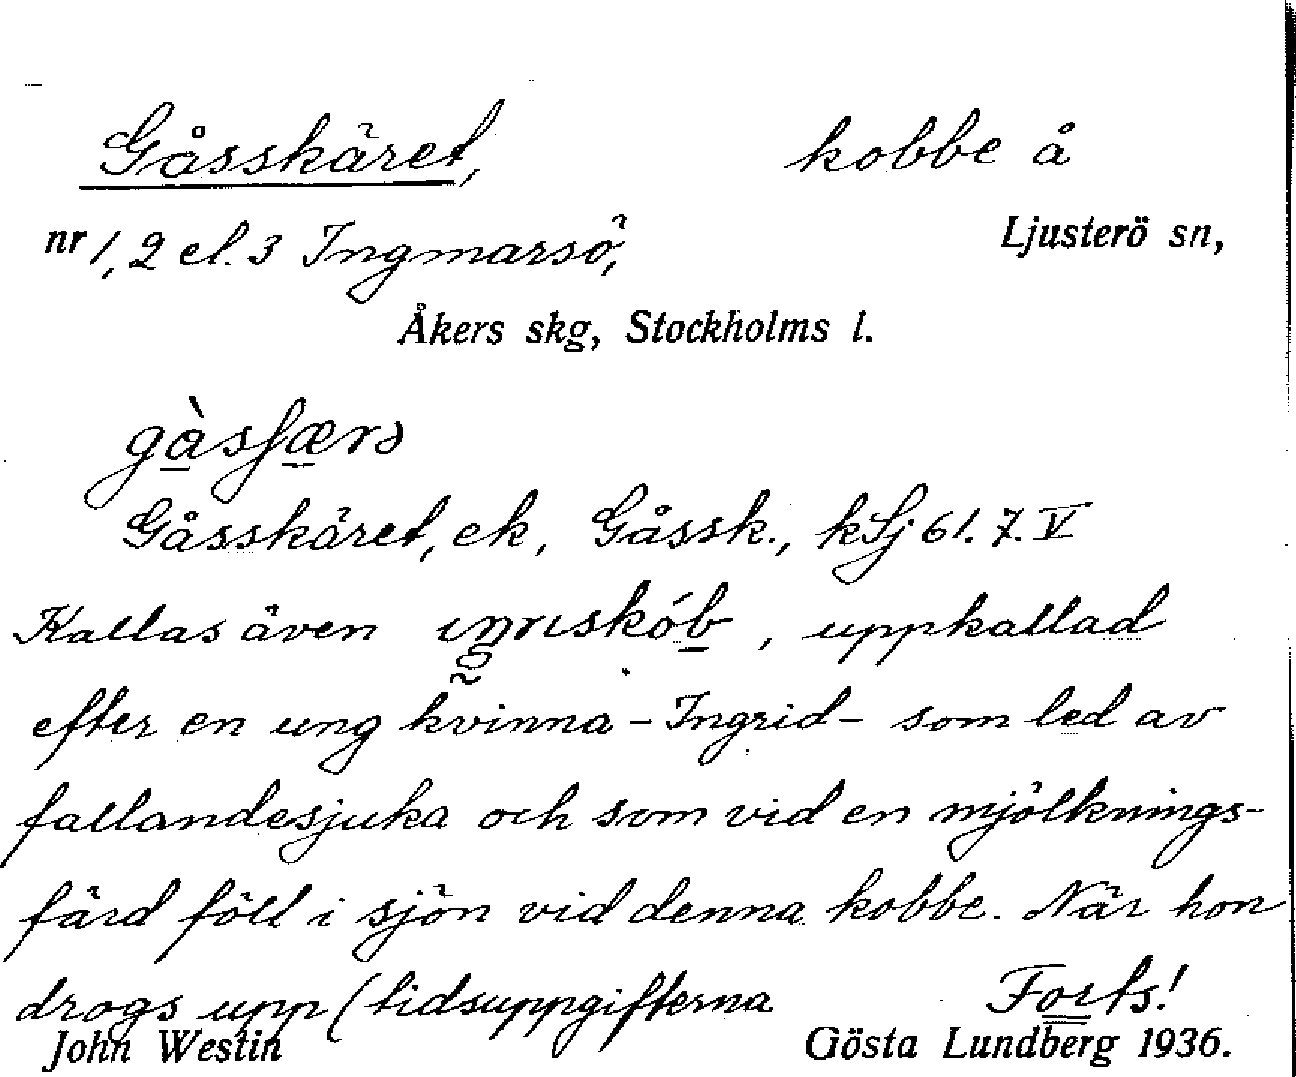 Gåsskäret, kobbe å
nr 1, 2 el. 3 Ingmarsö, Ljusterö sn,
Åkers skg, Stockholms l.
Gåsskäret, ek, Gåssk., kSj 61. 7. V
Kallas även , uppkallad
efter en ung kvinna - Ingrid - som led av
fallandesjuka och som vid en mjölknings-
färd föll i sjön vid denna kobbe. När hon
drogs upp (tidsuppgifterna Forts!
John Westin Gösta Lundberg 1936.